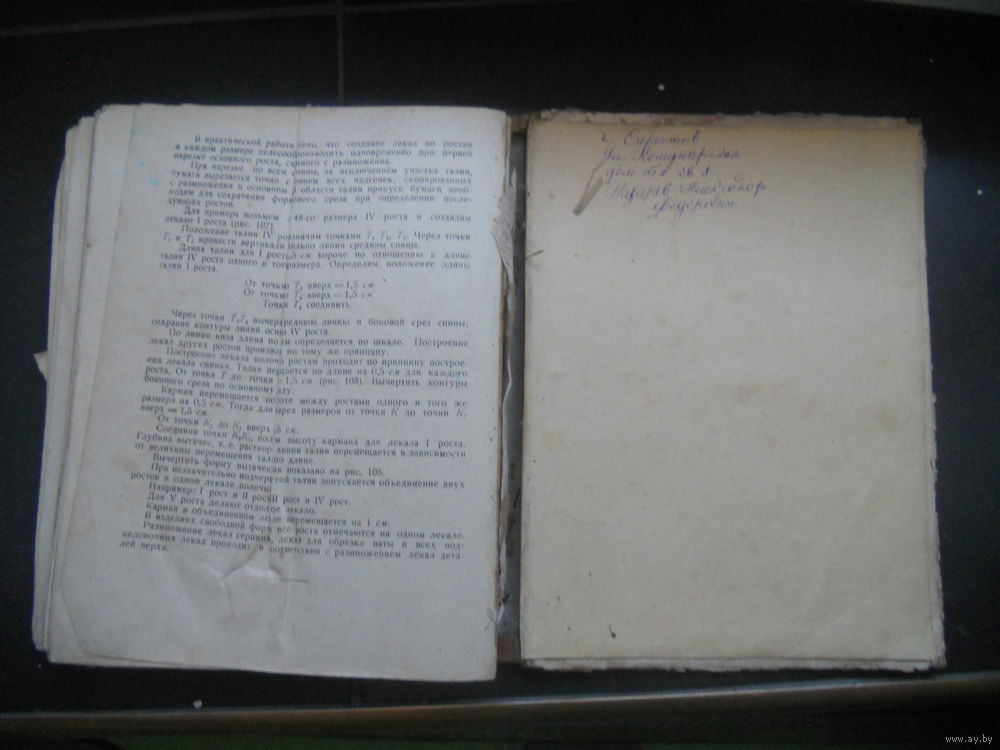 В практической работе  дено, что создание лекал по ростам
в каждом размере целесоо производить одновременно при первой
нарезке основного роста, с нного с размножения.
При нарезке по всем  пины, за исключением участка талии,
бумага вырезается точно с ением всех надсечек, скопированных
с размножения в основном  области талии припуск бумаги, необ-
ходим для сохранения фор ового среза при определении после-
дующих ростов.
Для примера возьмем  48-го размера IV роста и создадим
лекало I роста (рис. 107).
Положение талии IV ро значим точками T, T₁, T₂. Через точки
T₁ и T₂ провести вертикали ельно линия средины спины.
Длина талии для I рост ,5 см короче по отношению к длине
талии IV роста одного и то размера. Определим положение длины
талии I роста.
От точки T₃ вверх = 1,5 см
От точки T₄ вверх = 1,5 см
Точки T₄ соединить.
Через точки T₃T₄ вычерт реднюю линию и боковой срез спины,
сохраняя контуры линий осно IV роста.
По линии низа длина по м определяется по шкале. Построение
лекал других ростов произво по тому же принципу.
Построение лекала полоч ростам проходит по принципу построе-
ния лекала спинки. Талия пе щается по длине на 0,5 см для каждого
роста. От точки T до точки = 1,5 см (рис. 108). Вычертить контуры
бокового среза по основному алу.
Карман перемещается по оте между ростами одного и того же
размера на 0,5 см. Тогда для рех размеров от точки K до точки K₂
вверх = 1,5 см.
От точки K₁ до K₃ вверх ,5 см.
Соединив точки K₂K₃, пол м высоту кармана для лекала I роста.
Глубина вытачек, т. е. раствор линии талии перемещается в зависимости
от величины перемещения тал по длине.
Вычертить форму вытачек ак показано на рис. 108.
При незначительно подчер той талии допускается объединение двух
ростов в одном лекале полочк
Например: I рост и II рос II рост и IV рост.
Для V роста делают отдел ое лекало.
Карман в объединенном ле е перемещается на 1 см.
В изделиях свободной форм все роста отмечаются на одном лекале.
Размножение лекал серий , лекал для обрезки ваты и всех под-
меловочных лекал проходит в соответствии с размножением лекал дета-
лей верха.
г. Саратов
ул. Коммунарная
дом
Назаров
Федорович
www.ay.by